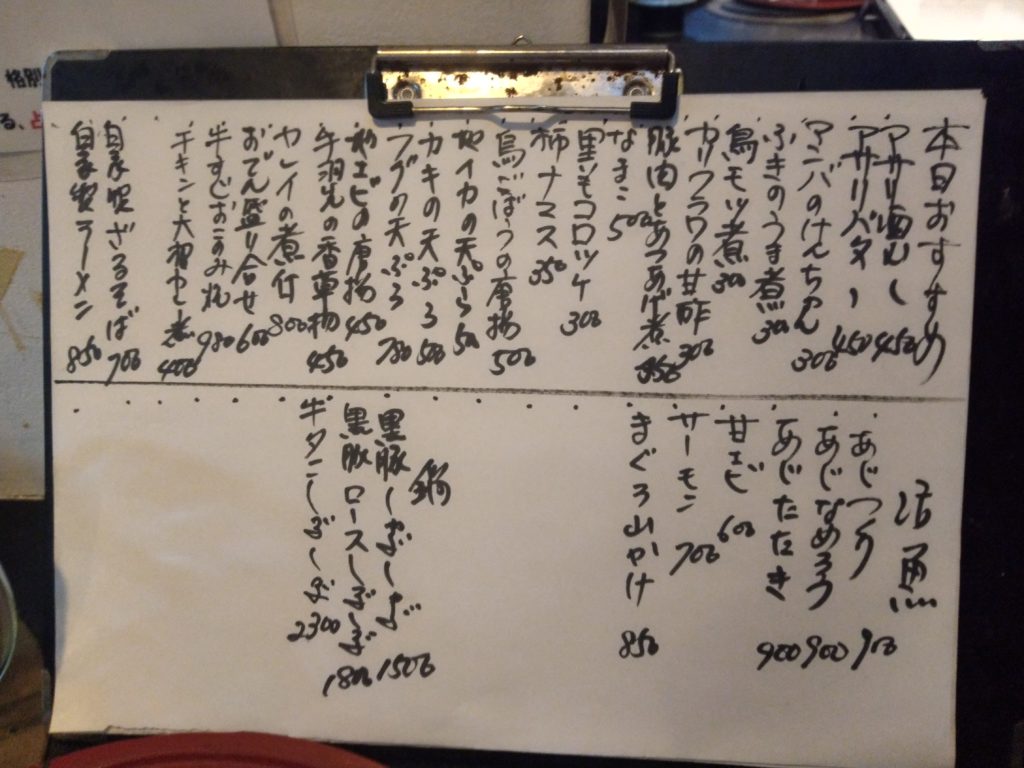 本日おすすめ
アサリ酒むし 450
アサリバター 450
アンバのけんちゃん 300
ふきのうま煮 300
鳥モツ煮 300
カリフラワの甘酢 300
豚肉とあつあげ煮 350
なまこ 500
里いもコロッケ 300
柿ナマス 350
鳥ごぼうの唐揚 500
地イカの天ぷら 500
カキの天ぷら 500
フグの天ぷら 780
初エビの唐揚 450
手羽先の香草揚 450
カレイの煮付 800
おでん盛り合せ 600
牛すじおこのみ丸 980
チキンと大根中と煮 400
自家製ざるそば 700
自家製ラーメン 850
活魚
あじつくり 900
あじなめろう 900
あじたたき 900
甘エビ 600
サーモン 700
まぐろ山かけ 850
鍋
黒豚しゃぶしゃぶ 1500
黒豚ロースしゃぶしゃぶ 1800
牛タンしゃぶしゃぶ 2300
格別
る、